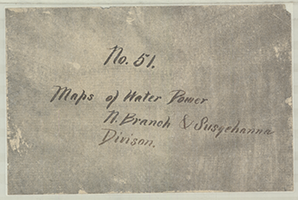 No. 51.
Maps of Water Power
N. Branch & Susqehanna
Divison.